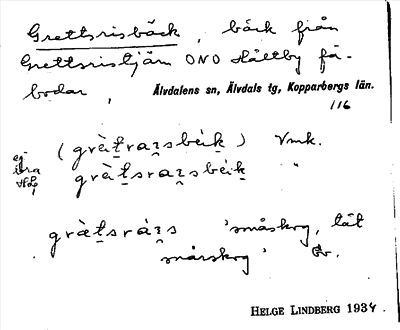 Grettsrisbäck, bäck från
Grettsristjärn ONO Håltby fä-
bodar, Älvdalens sn, Älvdals tg, Kopparbergs län.
116
(grèt̠rai̯sbèk̠) Vmk.
ej
bra
grèt̠srai̯sbèik̠ "
grèt̠srài̯s 'småskog, tät
småskog' Öv.
HELGE LINDBERG 1934.